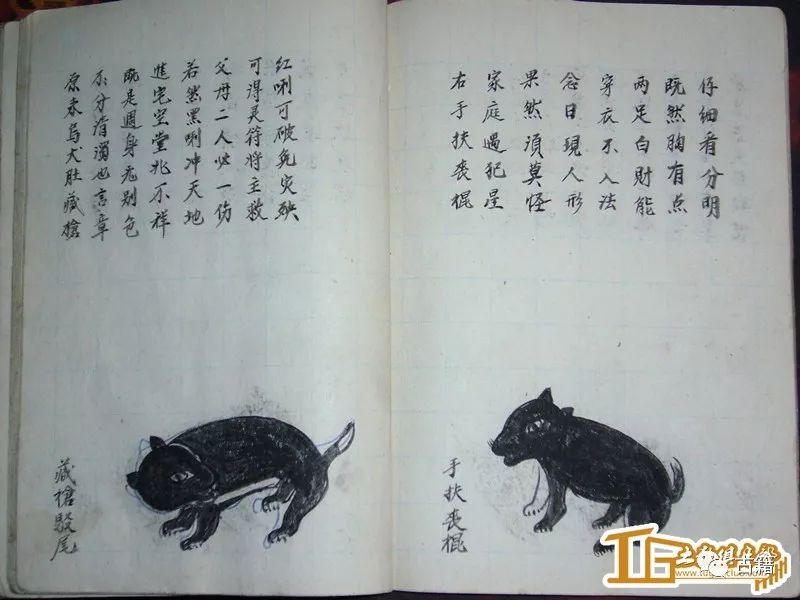 原来烏犬肚藏槍
不分清濁也言章
既是週身尨别色
進宅空堂兆不祥
若然黑唎冲天地
父母二人必一伤
可得灵符将主救
红唎可破免灾殃
藏槍駁尾
右手扶丧棍
家庭遇犯星
果然須莫怪
念日現人形
穿衣不入法
两足白財能
既然胸有点
仔细看分明
手扶丧棍
古籍